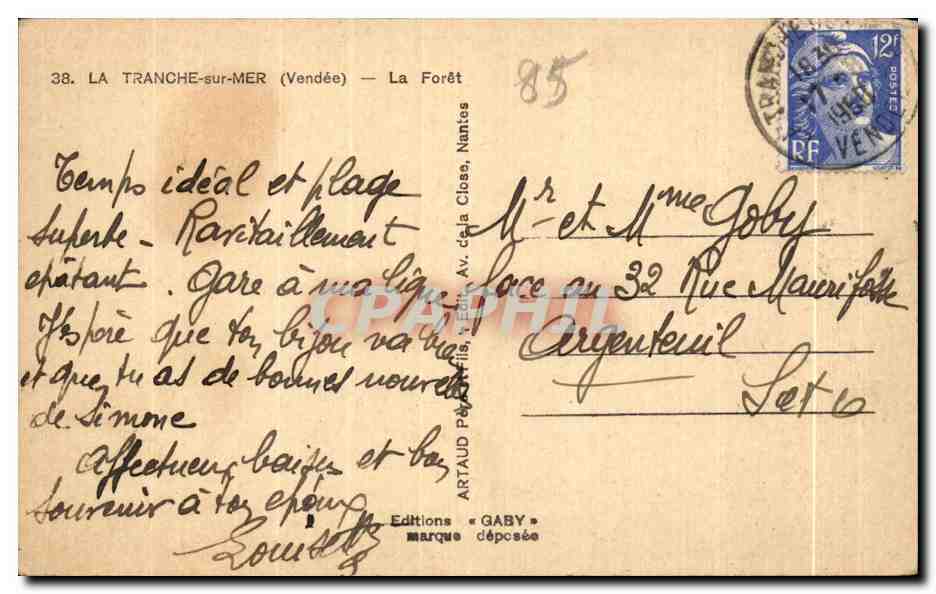 38. LA TRANCHE-sur-MER (Vendée) — La Forêt
85
12F
POSTES
RF
18 30
1950
VENDÉE
Temps idéal et plage
superbe - Ravitaillement
épatant. Gare à ma ligne
J'espère que ton bijou va bien
et que tu as de bonnes nouvelles
de Simone
Affectueux baisers et bon
souvenir à ton époux
Louisette
ARTAUD Père et Fils, Edit. Av. de la Close, Nantes
Mr et Mme Goby
face au 32 Rue Maurice
Argenteuil
S et O
Editions « GABY »
marque déposée
CPAPHIL